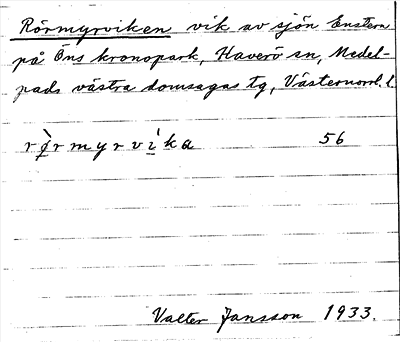 Rörmyrviken vik av sjön Enstern
på Öns kronopark, Haverö sn, Medel-
pads västra domsagas tg, Västernorrl. l.
rø̀rmyrvìka 56
Valter Jansson 1933.